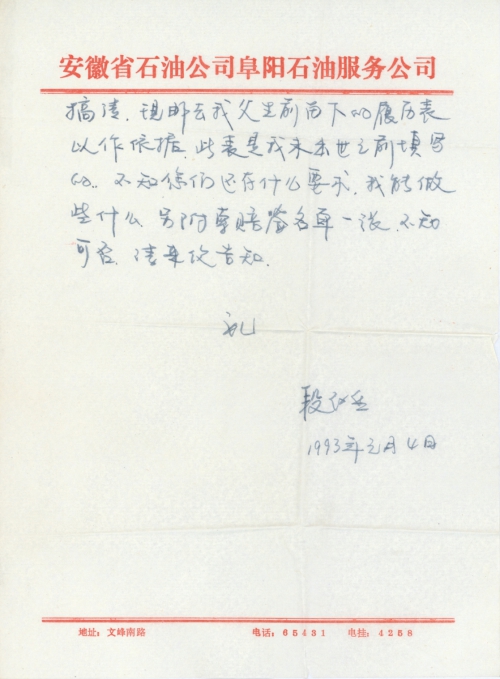 安徽省石油公司阜阳石油服务公司
搞清，现邮去我父生前留下的履历表
以作依据，此表是我未出世之前填写
的。不知你们还有什么要求，我能做
些什么。另附索赔签名单一张，不知
可否，请来信告知。
礼
段
1993年元月4日
地址：文峰南路 电话：65431 电挂：4258